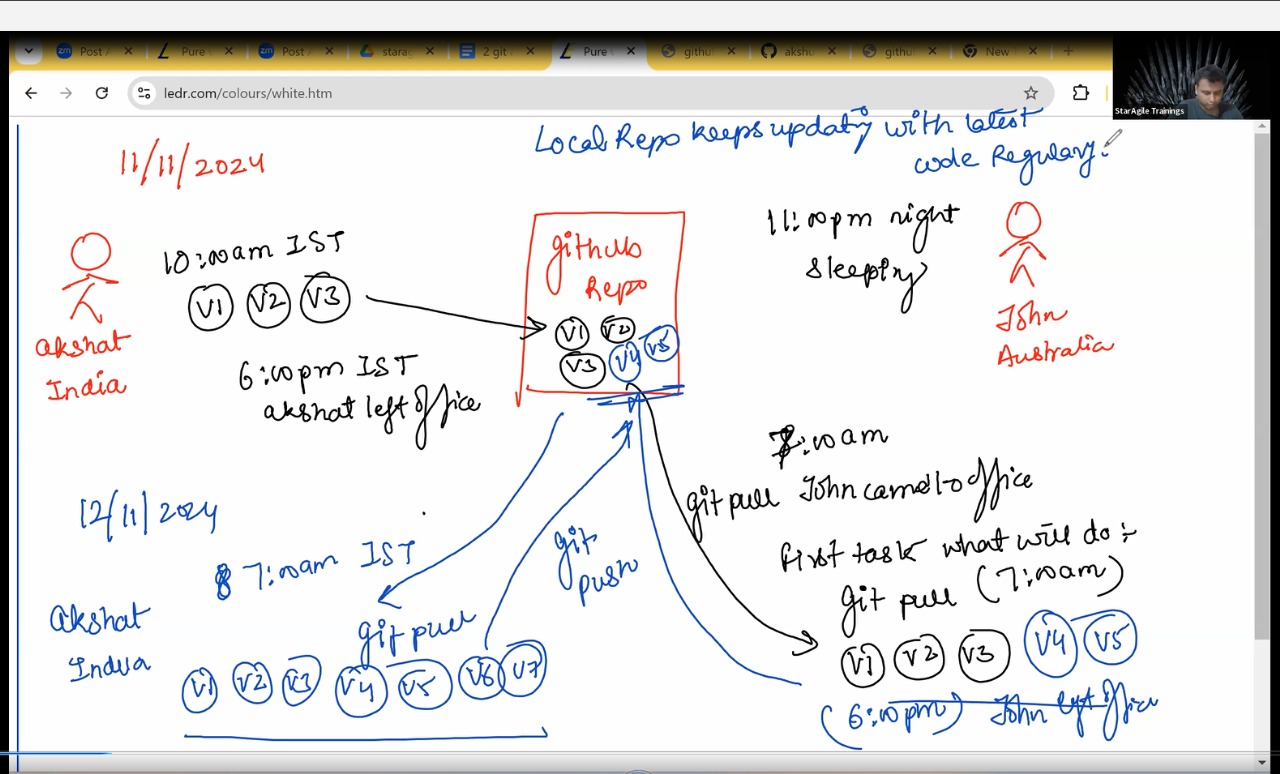 Post
Pure
Post
starag
2 git
Pure
githu
akshu
githu
New
ledr.com/colours/white.htm
StarAgile Trainings
Local Repo keeps updating with latest
code Regulary.
11/11/2024
10:00am IST
V1 V2 V3
akshat
India
6:00pm IST
akshat left office
github
Repo
V1 V2
V3 V4 V5
11:00pm night
sleeping
John
Australia
7:00am
git pull John came to office
first task what will do :-
git pull (7:00am)
V1 V2 V3 V4 V5
(6:00pm) John left office
12/11/2024
7:00am IST
git push
Akshat
India
git pull
V1 V2 V3 V4 V5 V6 V7